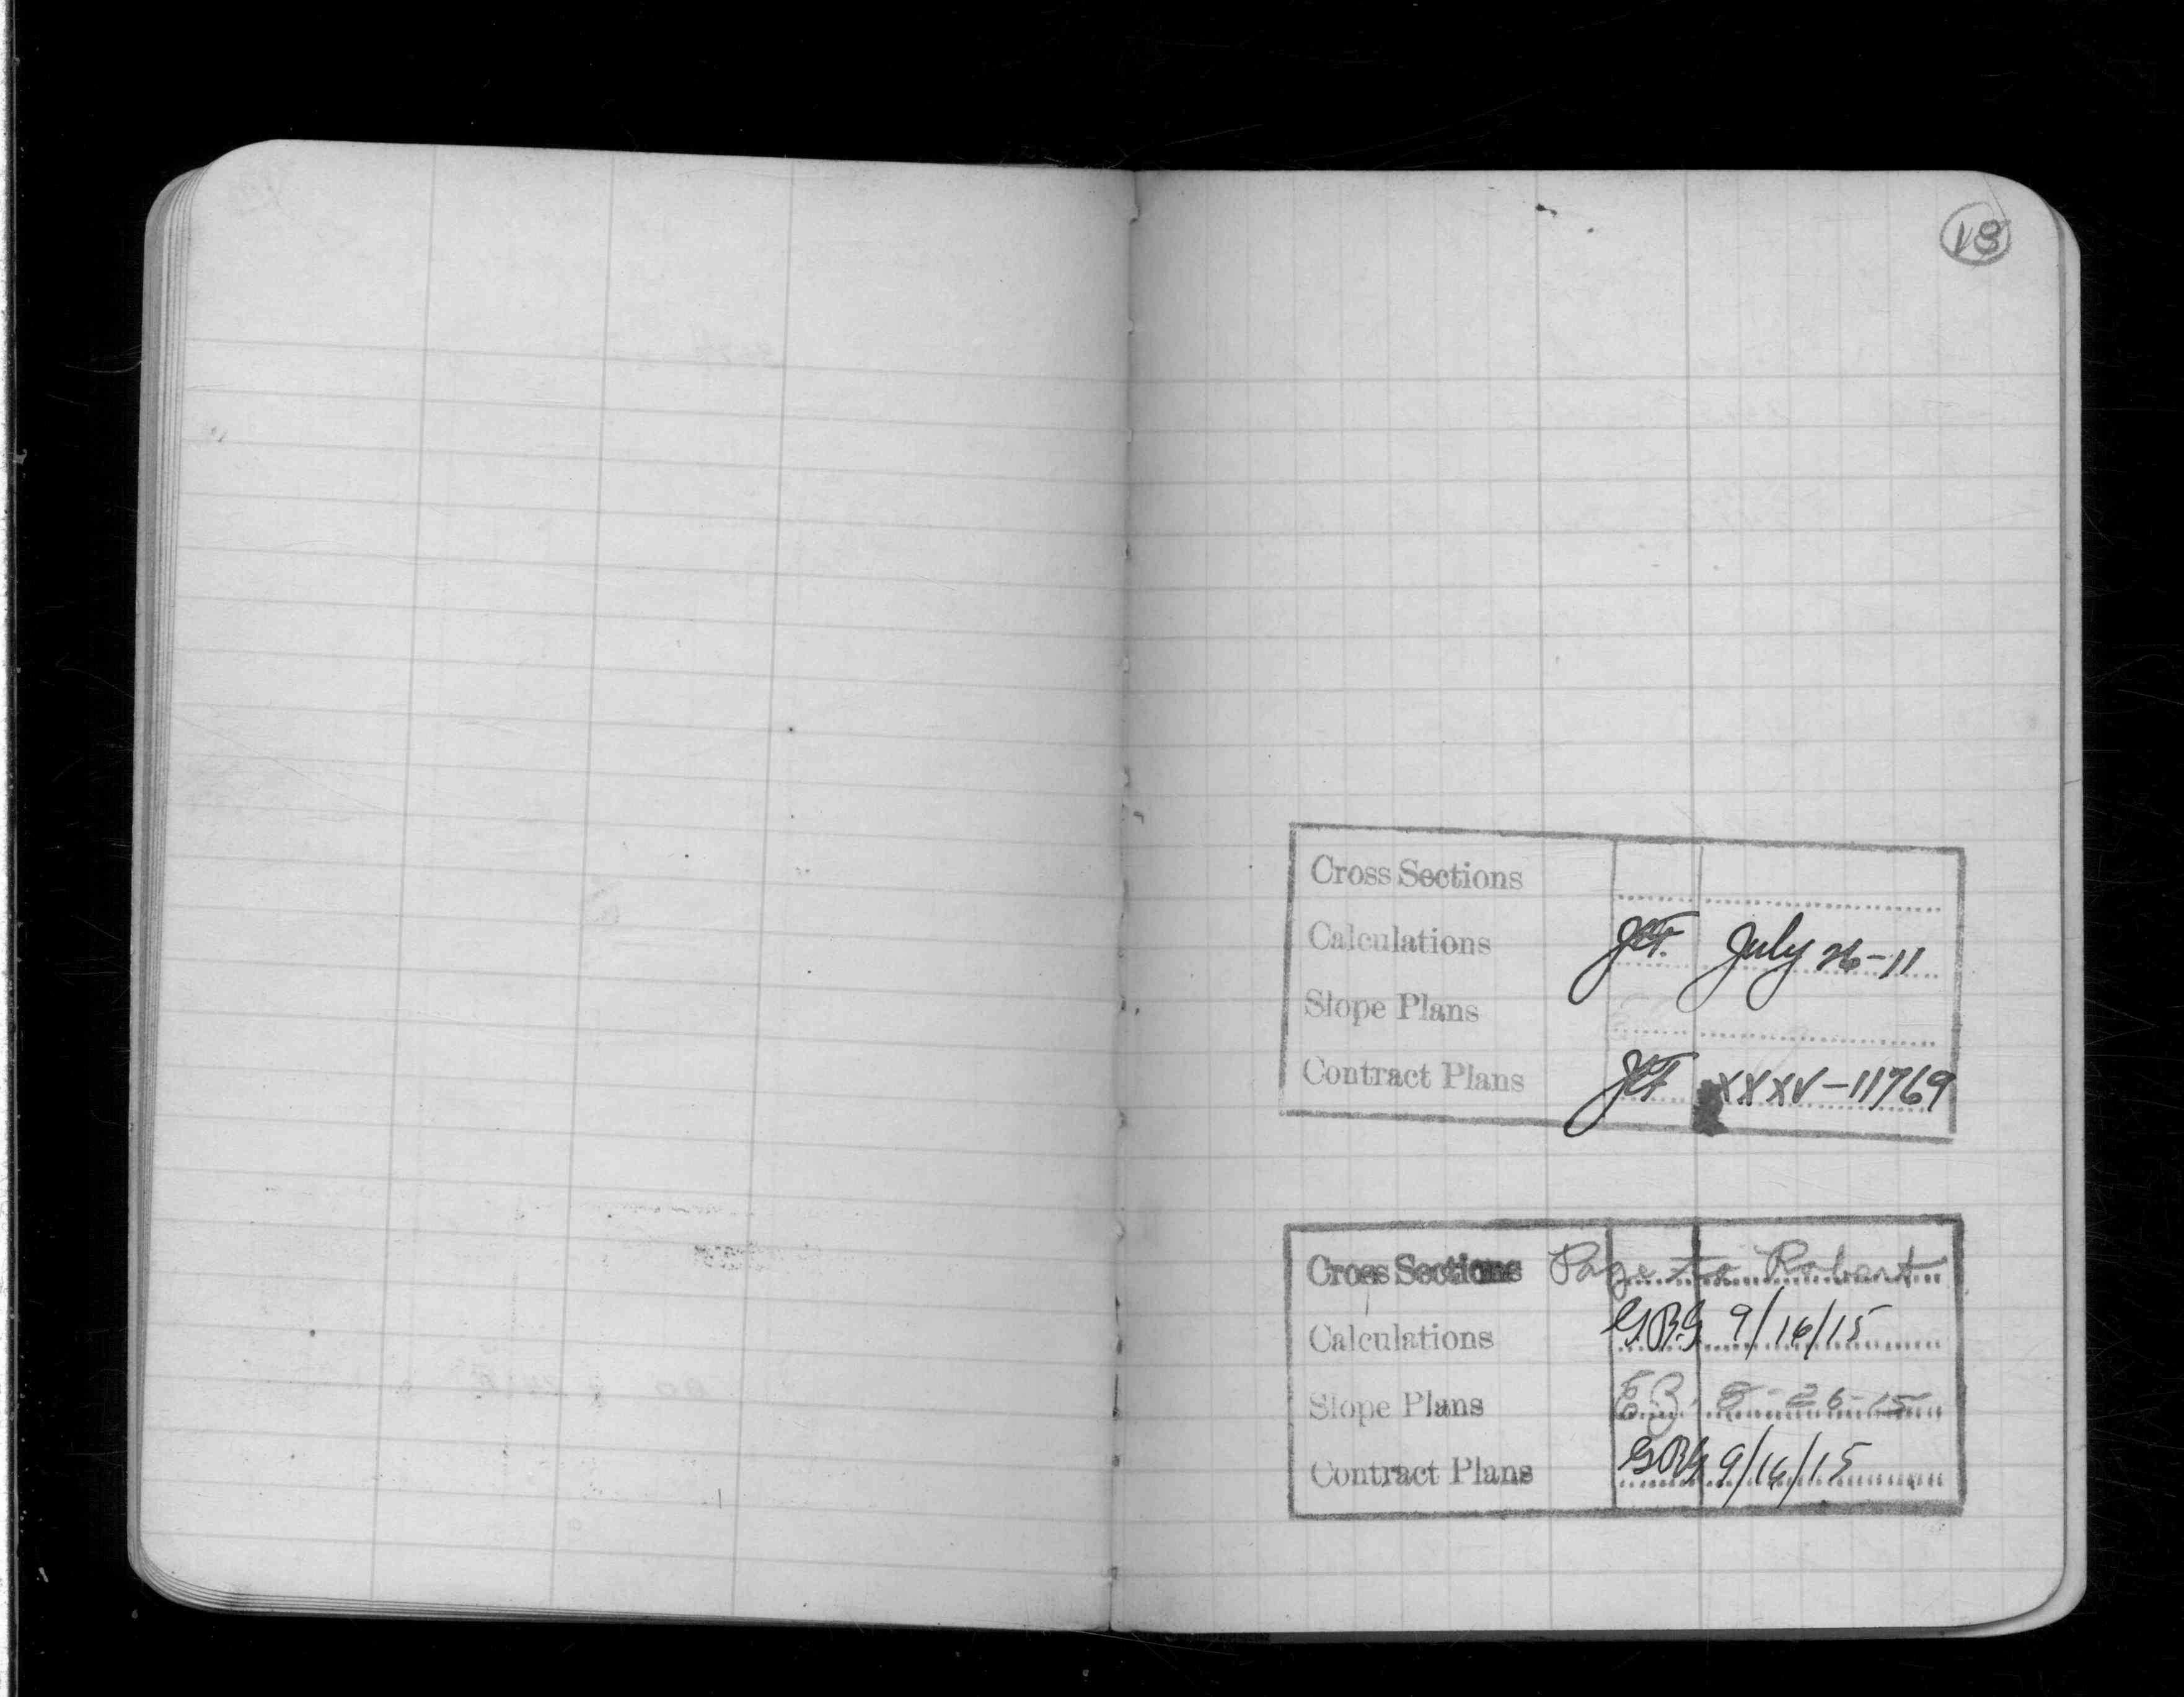 18
Cross Sections
Calculations July 26-11
Slope Plans
Contract Plans XXXV-11769
Cross Sections Page to Robert
Calculations G.R.G. 9/16/15
Slope Plans E.B. 8-26-15
Contract Plans GRG 9/16/15